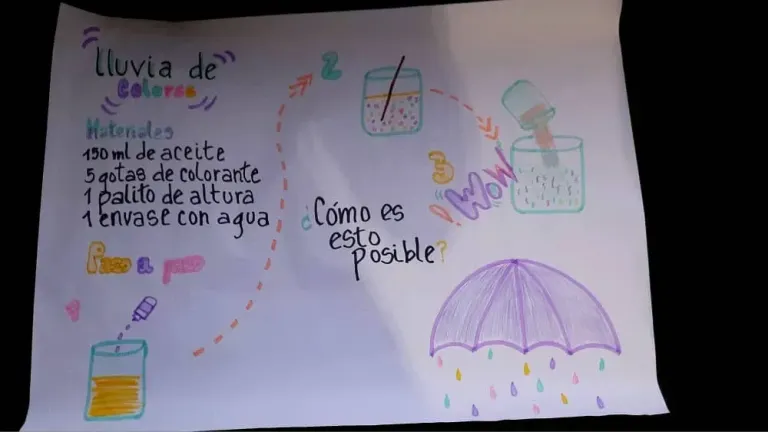 Lluvia de
Colores
Materiales
150 ml de aceite
5 gotas de colorante
1 palito de altura
1 envase con agua
Paso a paso
1
2
3
¡WOW!
¿Cómo es
esto
posible?